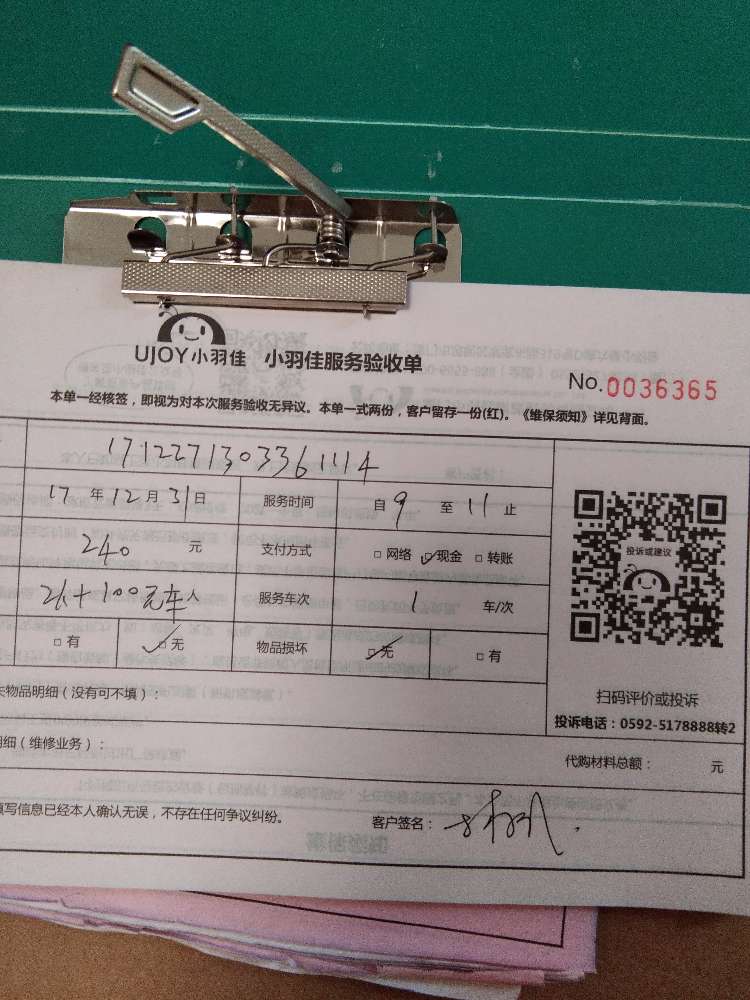 UJOY小羽佳 小羽佳服务验收单
No.0036365
本单一经核签，即视为对本次服务验收无异议。本单一式两份，客户留存一份(红)。《维保须知》详见背面。
17122713033611114
17年12月31日 服务时间 自9至11止
240元 支付方式 □网络 ☑现金 □转账
+100元车 服务车次 1 车/次
□有 ☑无 物品损坏 ☑无 □有
投诉或建议
扫码评价或投诉
投诉电话：0592-5178888转2
失物品明细（没有可不填）：
明细（维修业务）：
代购材料总额： 元
填写信息已经本人确认无误，不存在任何争议纠纷。
客户签名：